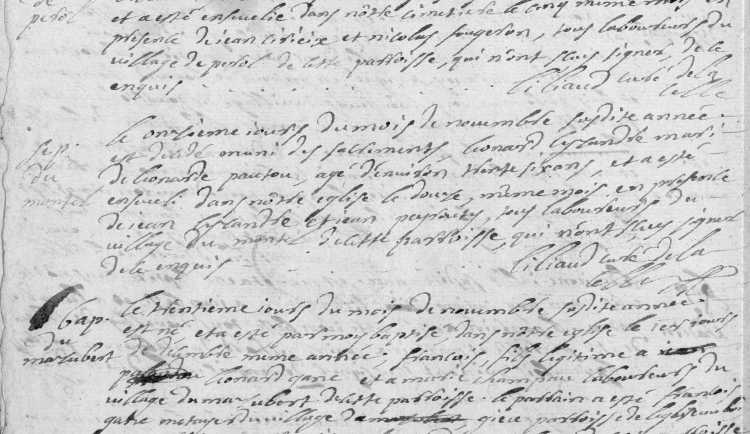 et a esté ensuelie dans nôtre cimetiere le cinq mime mois en
presence de jean cirieix et nicolas fougeron, tous laboureurs du
village de perol de cette parroisse, qui n'ont sçus signer, de ce
enquis
Ciliaud curé de la
celle
sep.
du
montel
le onzieme jours du mois de novembre susdite année
est décédé muni des sacrements, leonard lissandre mari
de leonarde pautou, agé d'environ trente six ans, et a esté
enseveli dans nôtre eglise le douze, même mois, en presence
de jean lissandre et jean peyrouty, tous laboureurs du
village du montel de cette parroisse, qui n'ont sçus signer
de ce enquis
Ciliaud curé de la
celle
bap.
du
mazubert
le trentieme jours du mois de novembre susdite année
est né et a esté par moi baptisé dans nôtre eglise le 1er jours
de décembre mime année, francois, fils legitime a
leonard gane et a marie champau laboureurs du
village du mazubert de cette parroisse. le parrain a esté francois
gane metayer du village de parroisse de